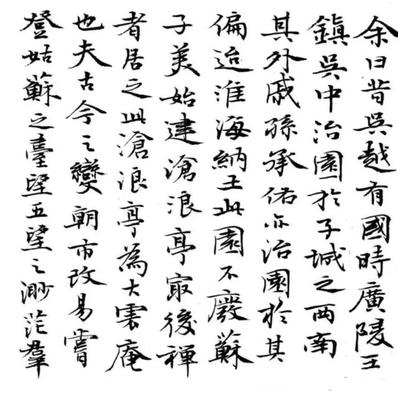 余曰昔吳越有國時廣陵王
鎮吳中治園於子城之西南
其外戚孫承佑亦治園於其
偏迨淮海納土此園不廢蘇
子美始建滄浪亭最後禪
者居之此滄浪亭為大雲庵
也夫古今之變朝市改易嘗
登姑蘇之臺望五望之渺茫羣